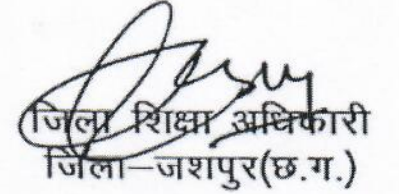 जिला शिक्षा अधिकारी
जिला–जशपुर(छ.ग.)